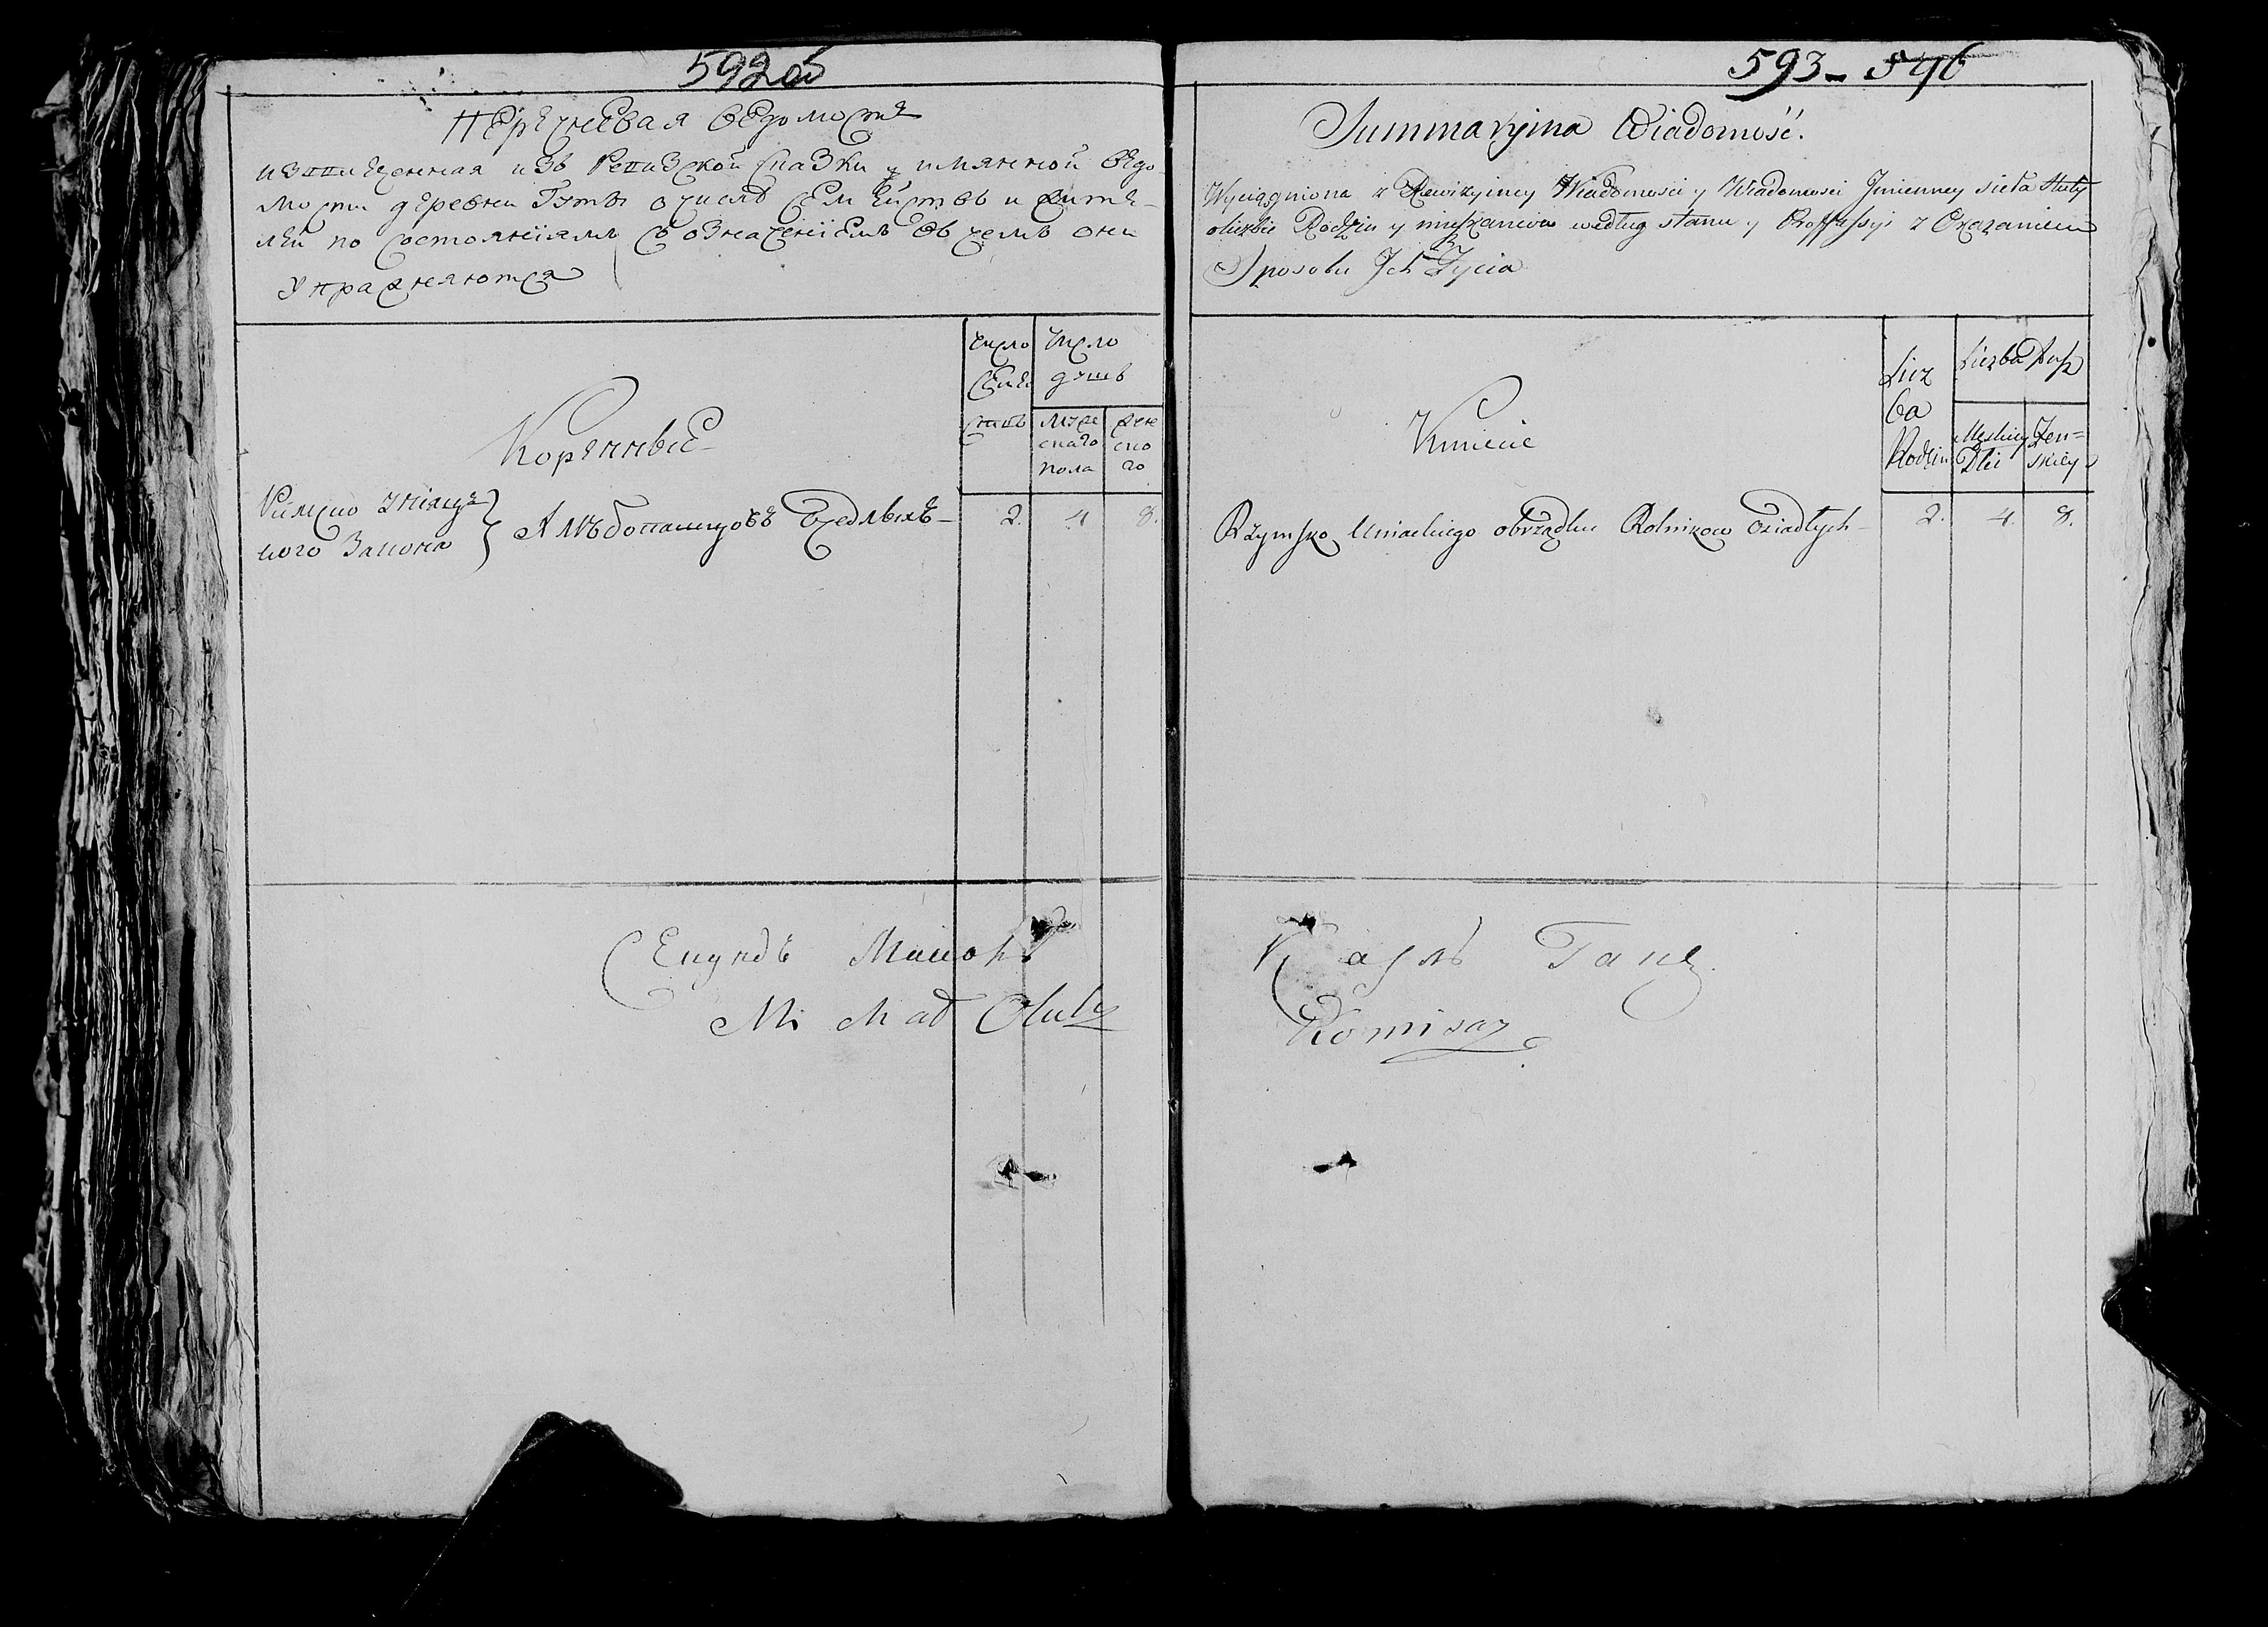 592об
Перечневая ведомость
извлеченная изъ Ревизской Сказки и имянной ведо-
мости деревни Гуты о числѣ семействъ и жите-
лей по состояніямъ съ означеніемъ въ чемъ они
упражняются
число семействъ
число душъ
мужескаго пола
женского
Коренные
Римско Уніяц-
кого Закона } Хлѣбопашцовъ Оседлыхъ-
2. 4 8.
Секундъ Маиоръ
593- 546
Summaryjna Wiadomość.
Wyciągniona z Rewizyiney Wiadomosci y Wiadomosci Jmienney sioła Huty
oliczbie Rodzin y mieszkancow według stanu y Proffessyi z Okazaniem
Sposobu Jch Życia
Licz
ba
Rodzin
Liczba Dusz
Męskiey Płci
Żen=
skiey
Kmiecie
Rzymsko Uniackiego obrządku Rolnikow Osiadłych-
2. 4. 8.
Карлъ
Komisarz